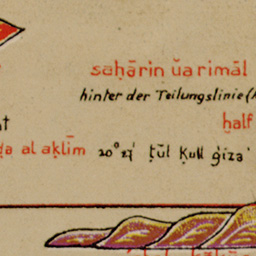 saḥārin ŭa rimāl
hinter der Teilungslinie
ḫalf
al aḳlīm 20° 27' ṭūl Ḳull ġiza'